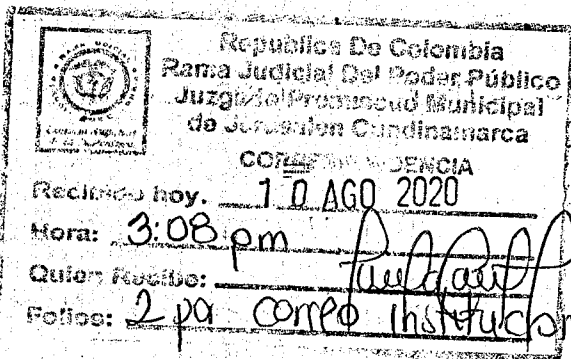 Republica De Colombia
Rama Judicial Del Poder Público
Juzgado Promiscuo Municipal
de Jerusalen Cundinamarca
CORRESPONDENCIA
Recibido hoy. 10 AGO 2020
Hora: 3:08 pm
Quien Recibe:
Folios: 2 por correo institucion